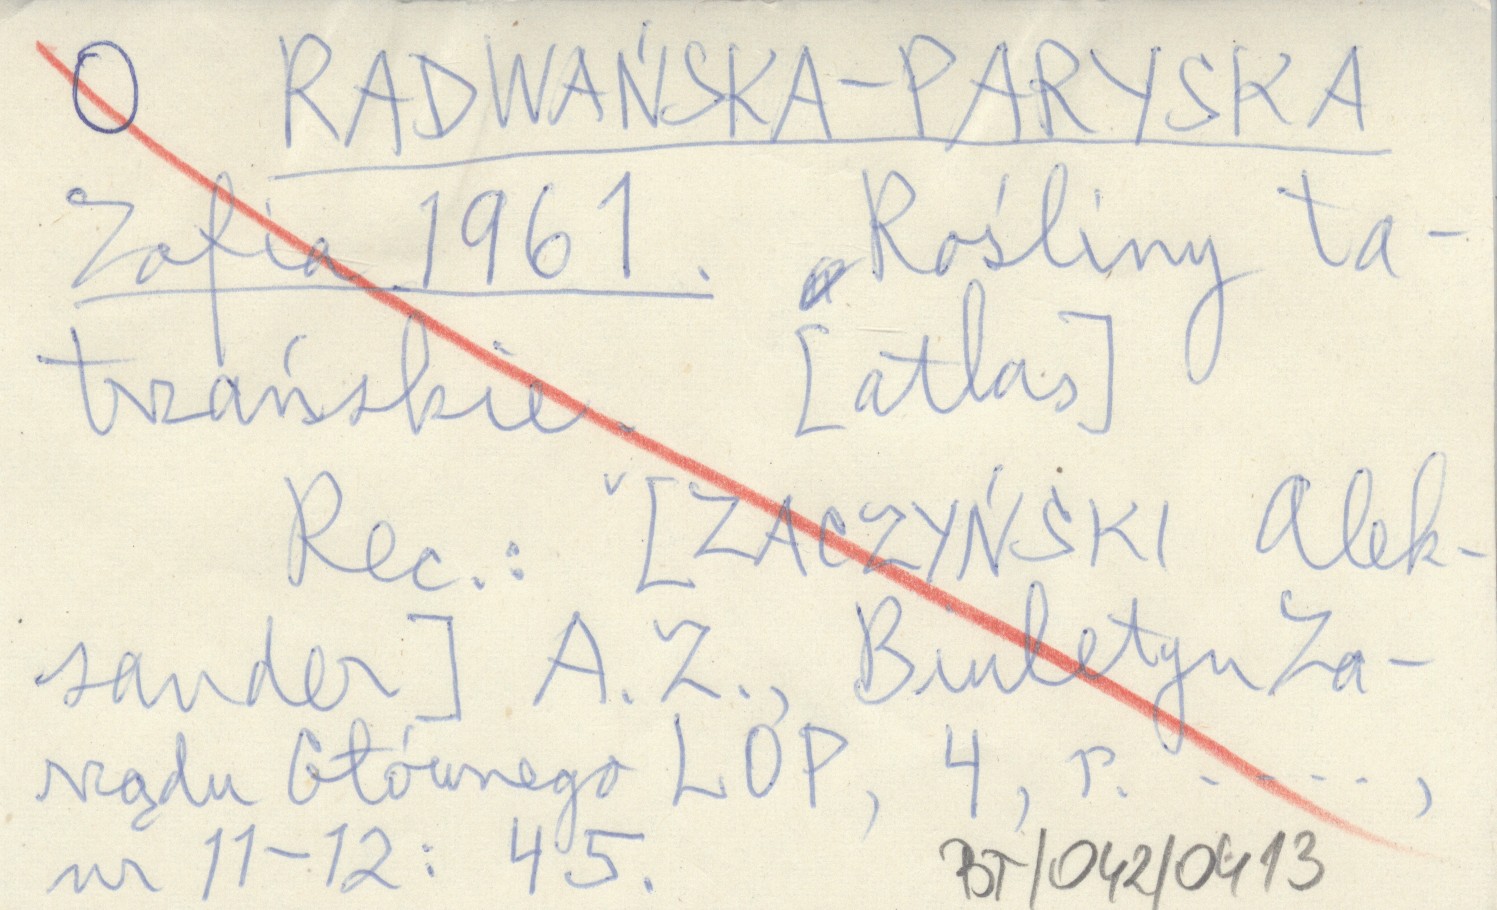 O RADWAŃSKA-PARYSKA
Zofia 1961. Rośliny ta-
trzańskie. [atlas]
Rec.: [ZACZYŃSKI Alek-
sander] A.Z., Biuletyn Za-
rządu Głównego LOP, 4, r. ....,
nr 11-12: 45.
BT/042/0413